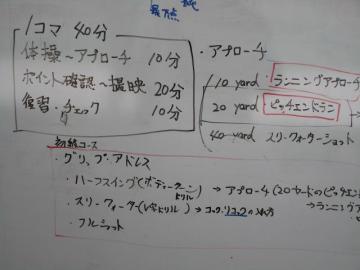 1コマ 40分
体操～アプローチ 10分
ポイント確認～撮映 20分
復習・チェック 10分
・アプローチ
10 yard ランニングアプロー
20 yard ピッチエンドラン
40 yard スリークォーターショット
初級コース
・グリップ、アドレス
・ハーフスイング(ボディーターンドリル) → アプローチ(20ヤードのピッチエン
→ ランニング
・スリークォーター(L字ドリル) → コック・リコックの入れ方
・フルショット